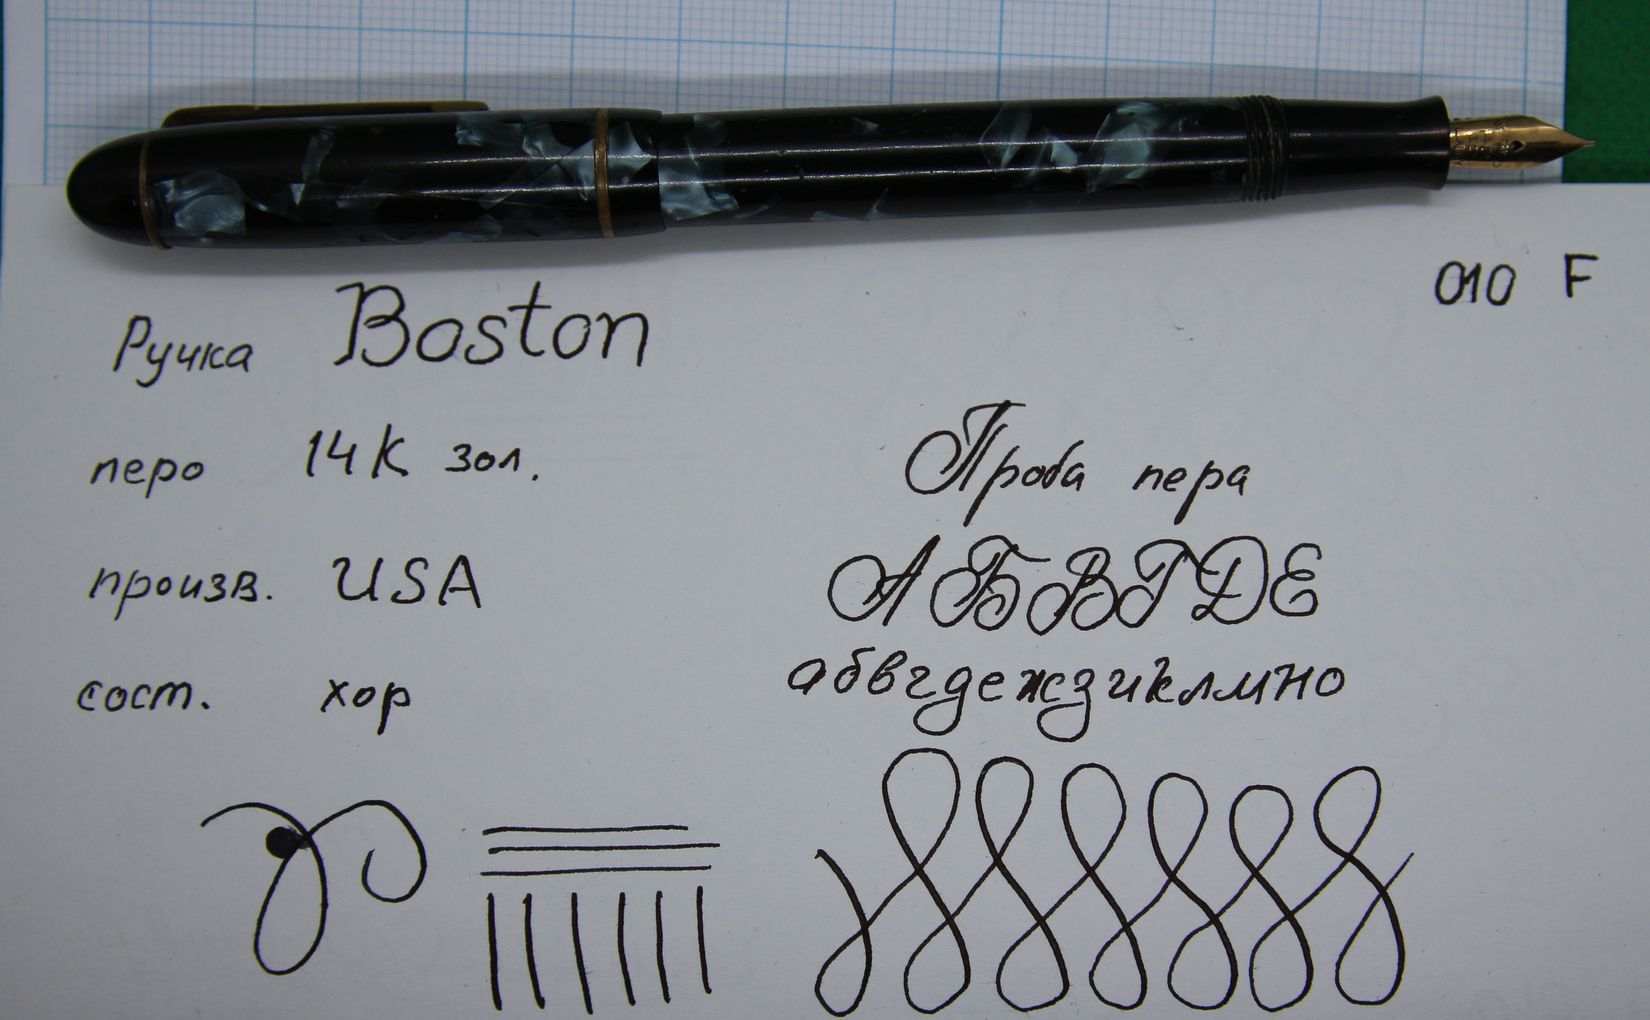 010 F
Ручка Boston
перо 14К зол.
Проба пера
произв. USA
АБВГДЕ
сост. хор
абвгдежзиклмно